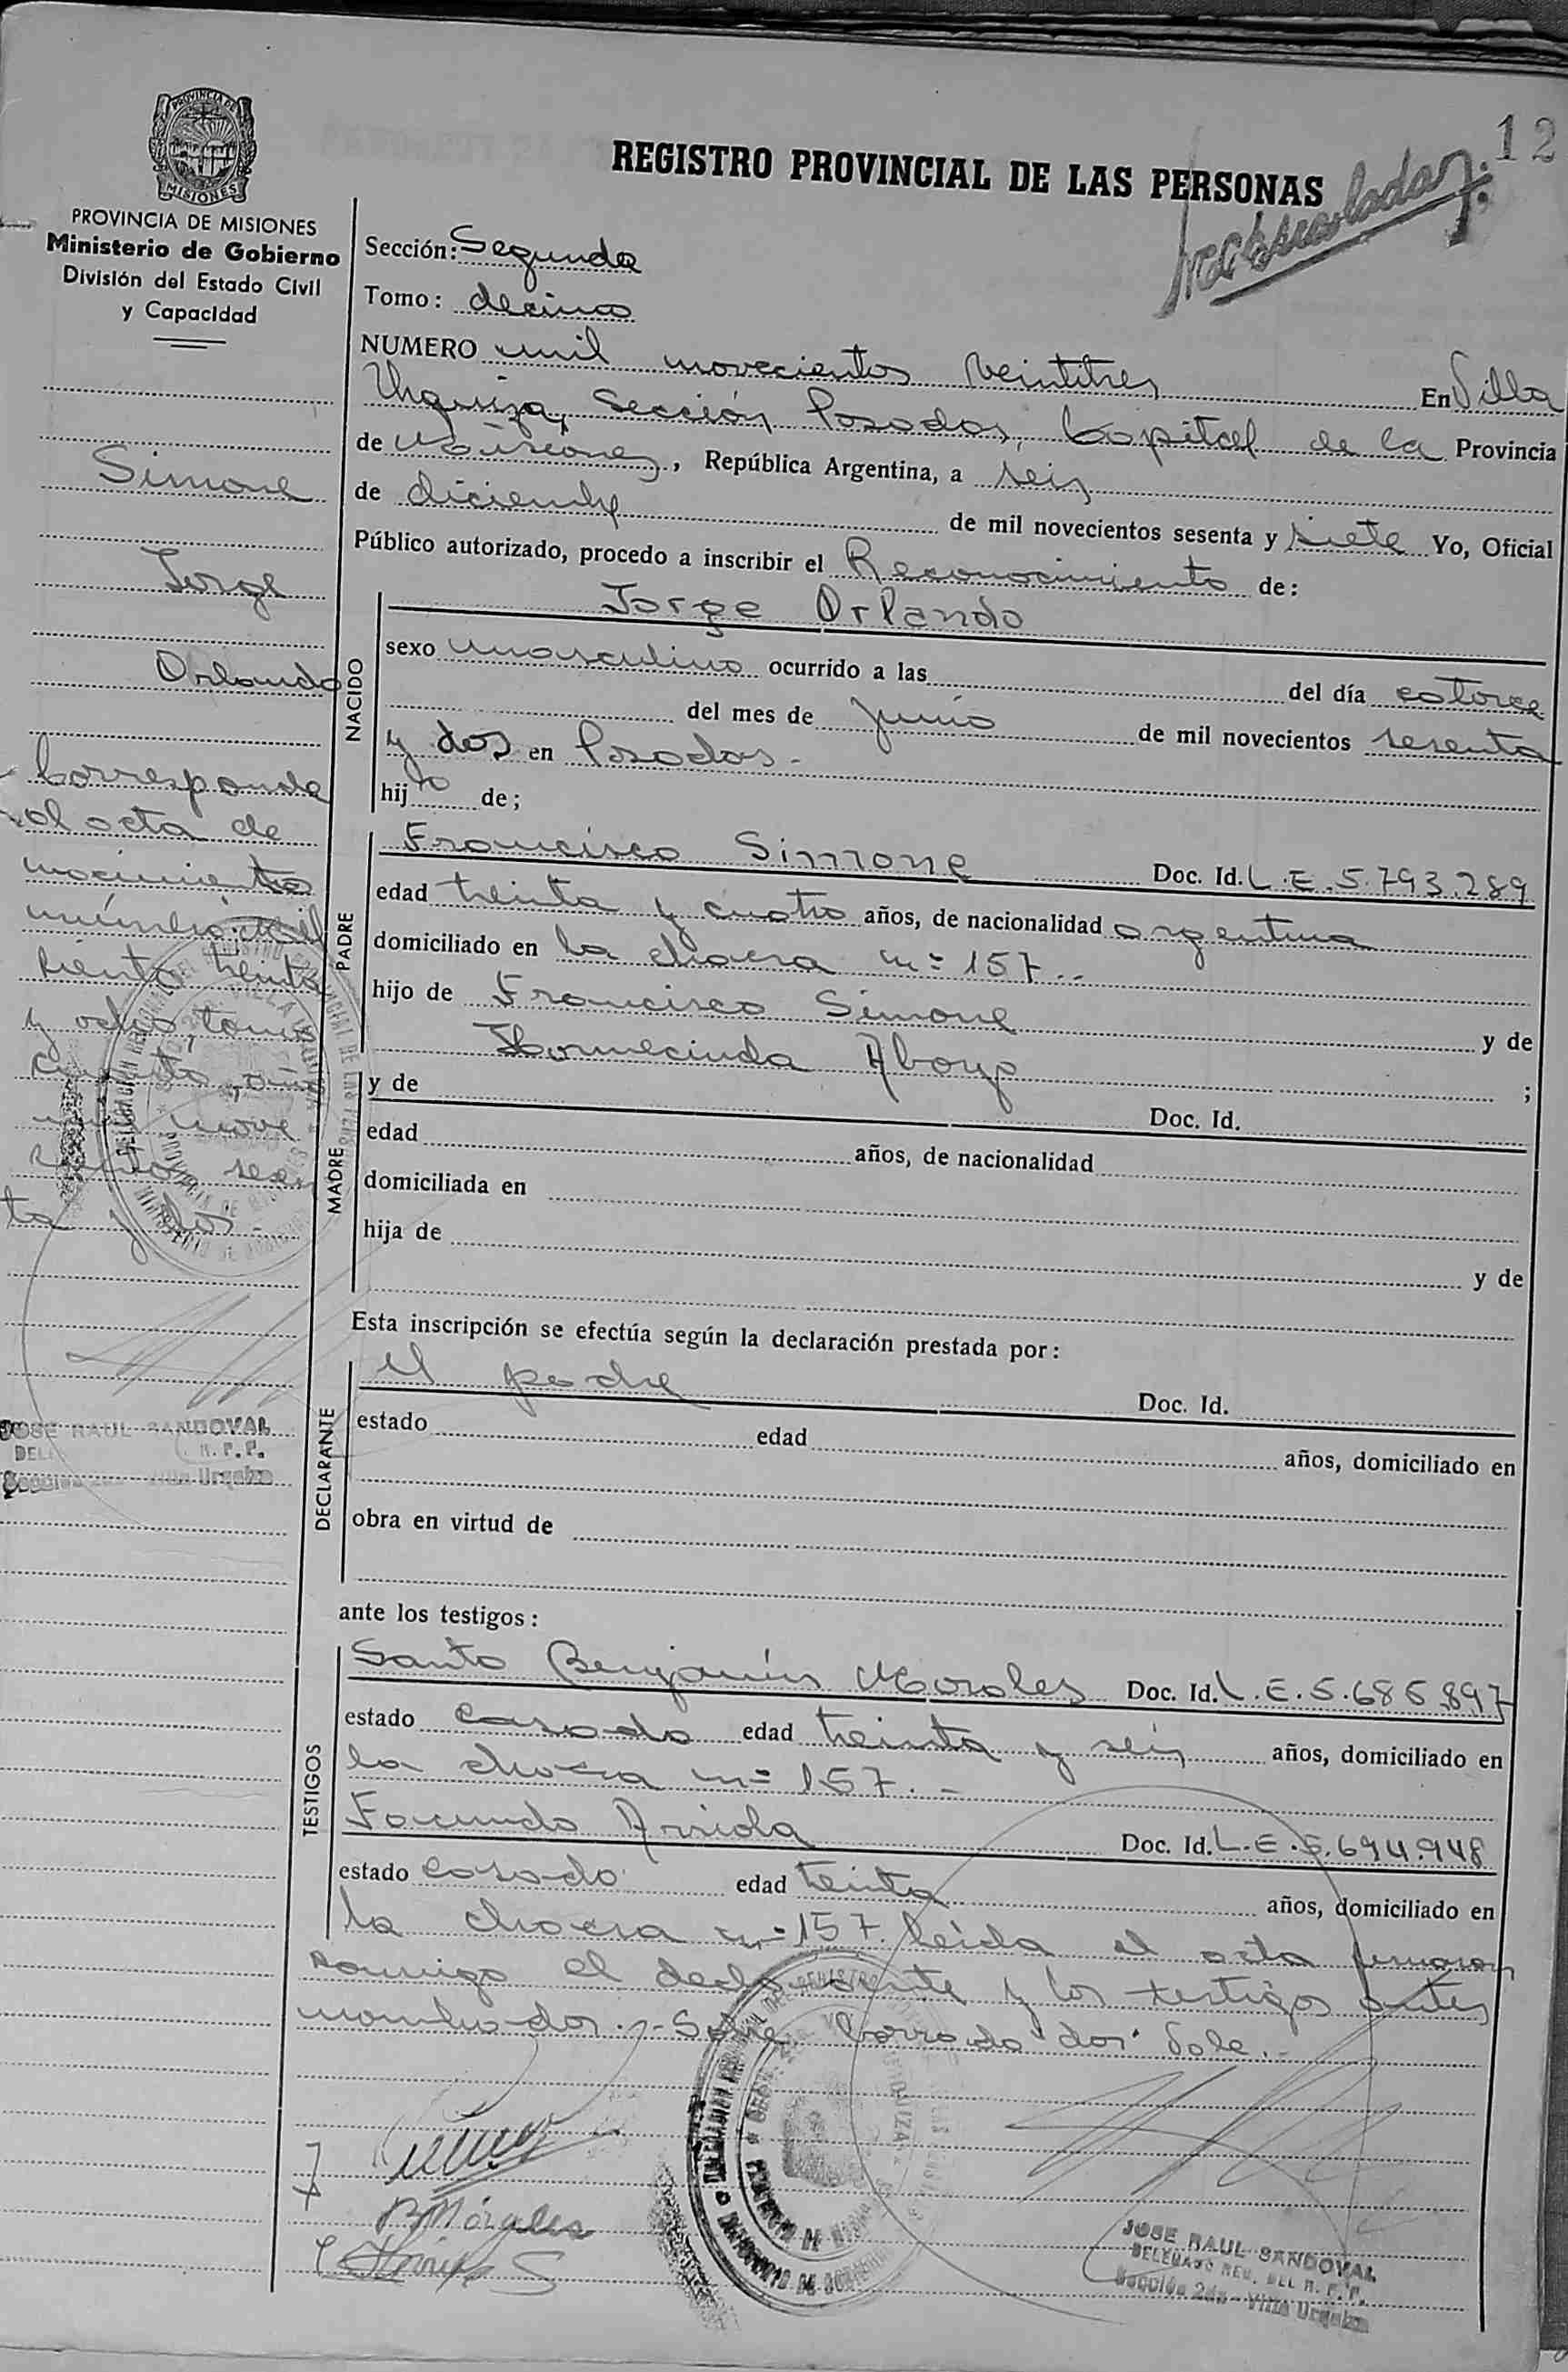 12
REGISTRO PROVINCIAL DE LAS PERSONAS
PROVINCIA DE
MISIONES
PROVINCIA DE MISIONES
Ministerio de Gobierno
División del Estado Civil
y Capacidad
Simone
Jorge
Orlando
Corresponde
al acta de
nacimiento
número: Mil
ciento treinta
y ocho, tomo
cuarto, año
mil nove
cientos sesen
ta y dos.-
JOSE RAUL SANDOVAL
R. P. P.
Sección 2da - Villa Urquiza
Sección: Segunda
Tomo: decimo
NUMERO mil novecientos veintitres En Villa
Urquiza, Sección Posadas, Capital de la Provincia
de Misiones, República Argentina, a seis
de diciembre de mil novecientos sesenta y siete Yo, Oficial
Público autorizado, procedo a inscribir el Reconocimiento de:
NACIDO
Jorge Orlando
sexo masculino ocurrido a las del día catorce
del mes de junio de mil novecientos sesenta
y dos en Posadas.-
hijo de;
PADRE
Francisco Simone Doc. Id. L.E.5.793.289
edad treinta y cuatro años, de nacionalidad argentina
domiciliado en la chacra nº 157.-
hijo de Francisco Simone y de
;
MADRE
y de Doc. Id.
edad años, de nacionalidad
domiciliada en
hija de y de
Esta inscripción se efectúa según la declaración prestada por:
DECLARANTE
el padre Doc. Id.
estado edad años, domiciliado en
obra en virtud de
ante los testigos:
TESTIGOS
Santo Benjamín Morales Doc. Id. L.E.5.685.897
estado casado edad treinta y seis años, domiciliado en
la chacra nº 157.-
Facundo Arriola Doc. Id. L.E.5.694.948
estado casado edad treinta años, domiciliado en
la chacra nº 157. Leída el acta firmaron
conmigo el declarante y los testigos antes
nombrados.- Sobre borrado "dos" Vale.-
B Morales
JOSE RAUL SANDOVAL
DELEGADO REG. DEL R. P. P.
Sección 2da - Villa Urquiza